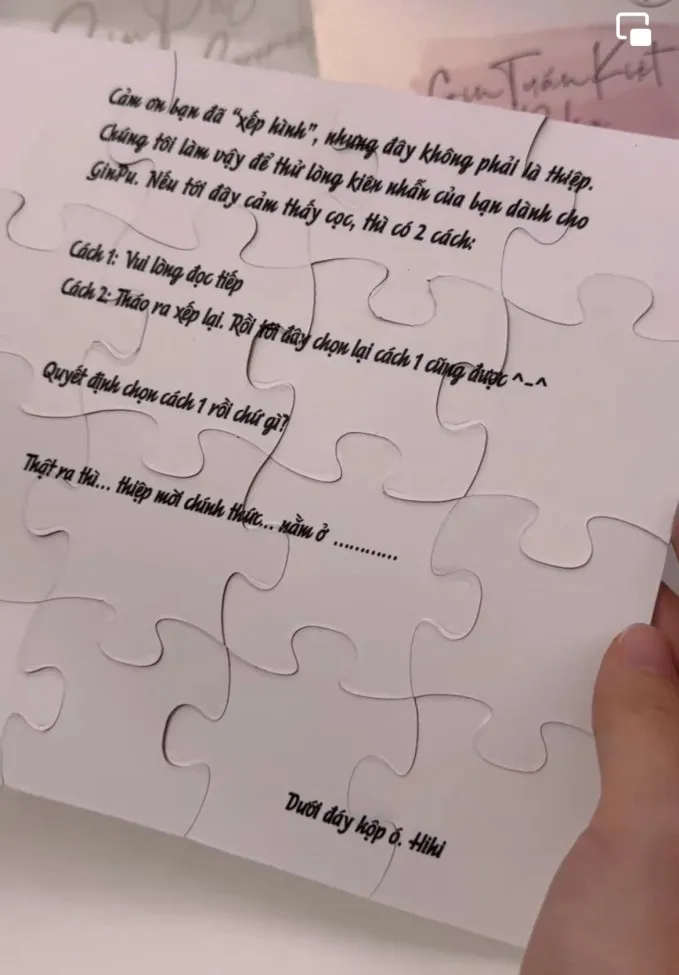 Gin Tuấn Kiệt
Cảm ơn bạn đã "xếp hình", nhưng đây không phải là thiệp.
Chúng tôi làm vậy để thử lòng kiên nhẫn của bạn dành cho
GinPu. Nếu tới đây cảm thấy cọc, thì có 2 cách:
Cách 1: Vui lòng đọc tiếp
Cách 2: Tháo ra xếp lại. Rồi tới đây chọn lại cách 1 cũng được ^-^
Quyết định chọn cách 1 rồi chứ gì?
Thật ra thì... thiệp mời chính thức... nằm ở ............
Dưới đáy hộp ó. Hihi